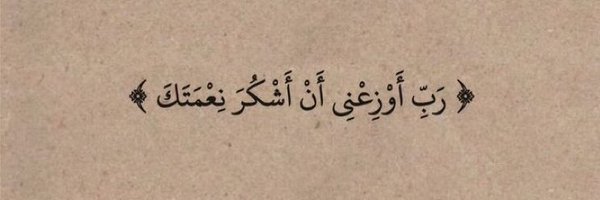 ﴿ رَبِّ أَوْزِعْنِى أَنْ أَشْكُرَ نِعْمَتَكَ ﴾